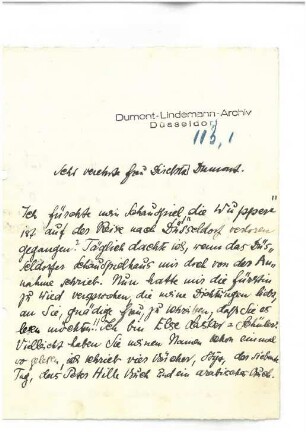 Dumont-Lindemann-Archiv
Düsseldorf
113,1
Sehr verehrte Frau Direktor Dumont.
Ich fürchte mein Schauspiel „die Wupper"
ist auf der Reise nach Düsseldorf verloren
gegangen? Täglich dachte ich, wenn das Düs-
seldorfer Schauspielhaus mir doch von der An-
nahme schrieb. Nun hatte mir die Fürstin
zu Wied versprochen, die meine Dichtungen liebt,
an Sie, gnädige Frau, zu schreiben, daß Sie es
lesen möchten!! Ich bin Else Lasker-Schüler.
Vielleicht haben Sie meinen Namen schon einmal
wo gelesen, ich schrieb vier Bücher, Styx, der siebente
Tag, das Peter Hille Buch und ein arabisches Buch.